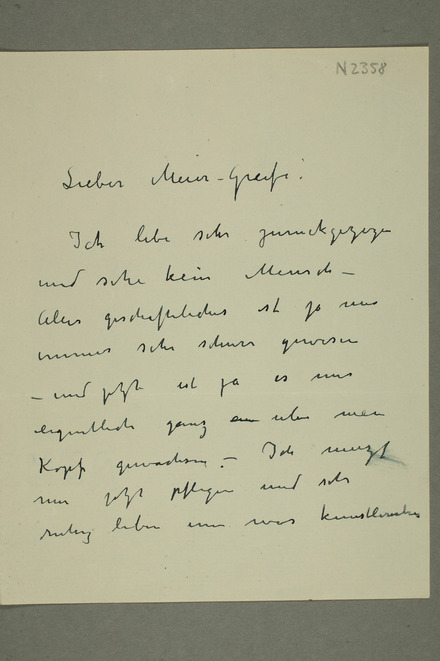 N2358
Lieber Meier-Graefe!
Ich lebe sehr zurückgezogen
und sehe kein Mensch –
Alles geschäftliches ist ja mir
immer sehr schwer gewesen
– und jetzt ist ja es mir
eigentlich ganz über mein
Kopf gewachsen. – Ich muss
mir jetzt pflegen und sehr
ruhig leben um was künstlerisches